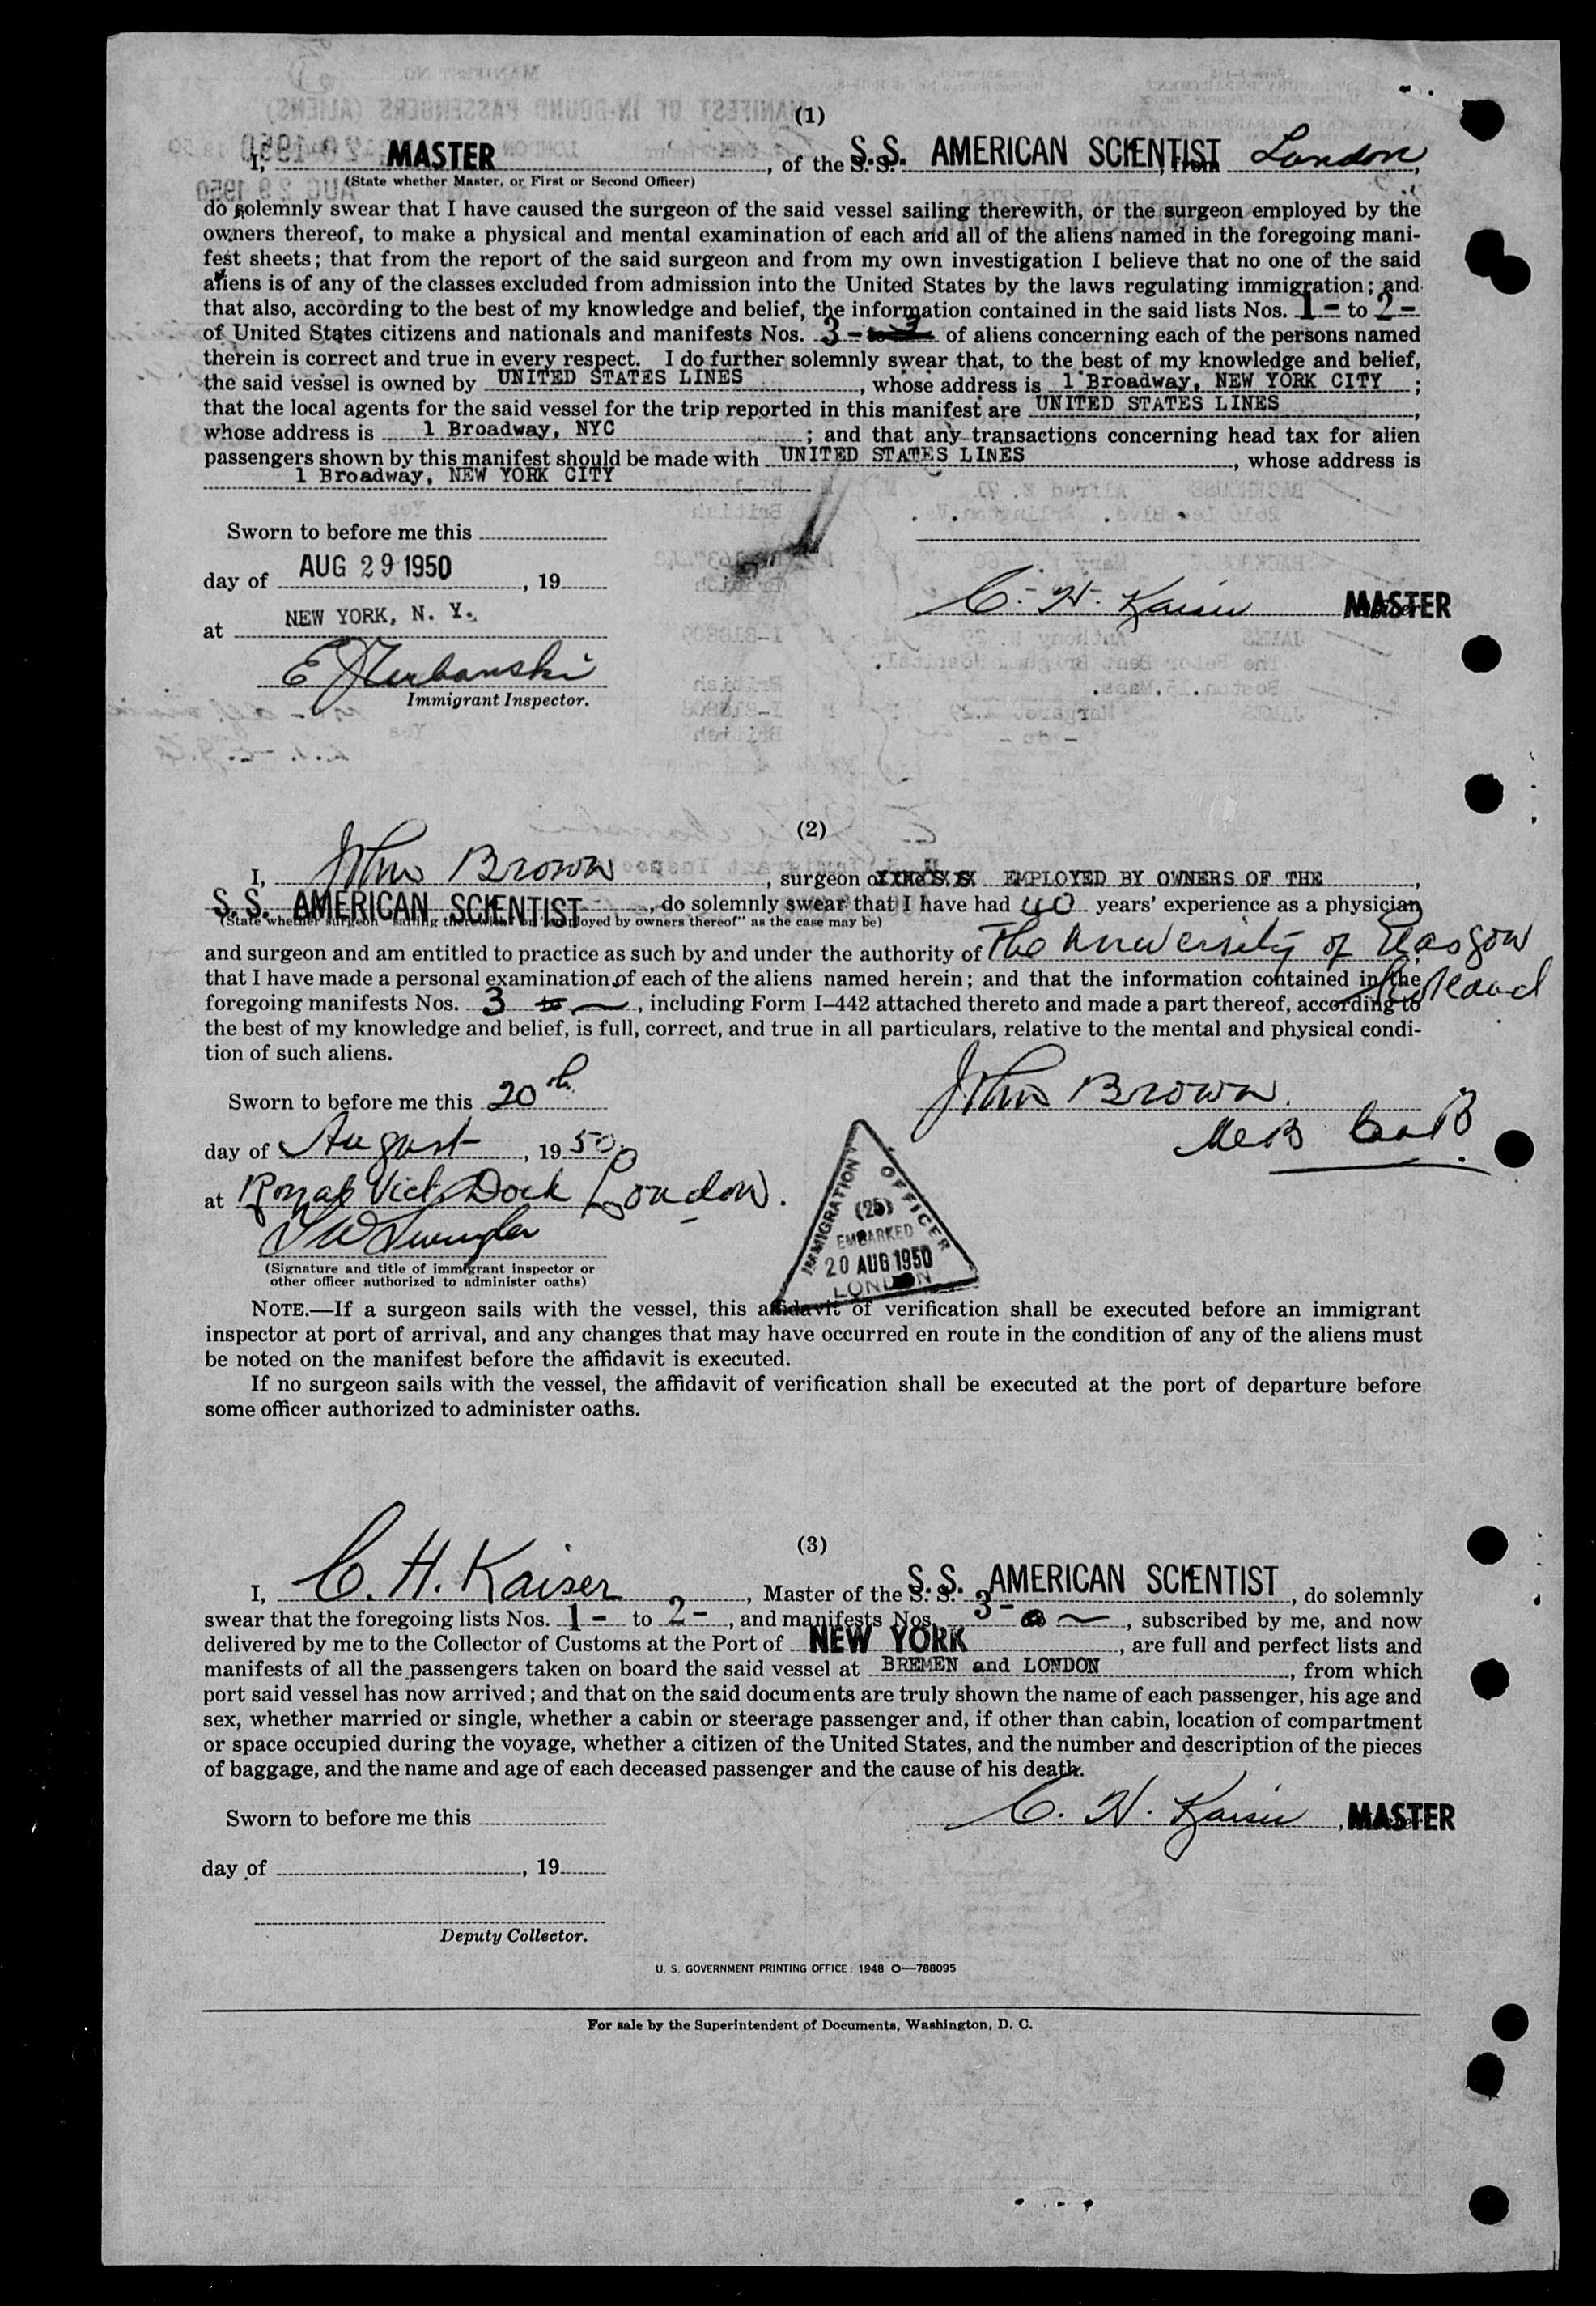 (1)
I, MASTER, of the S. S. AMERICAN SCIENTIST, from London,
(State whether Master, or First or Second Officer)
do solemnly swear that I have caused the surgeon of the said vessel sailing therewith, or the surgeon employed by the
owners thereof, to make a physical and mental examination of each and all of the aliens named in the foregoing mani-
fest sheets; that from the report of the said surgeon and from my own investigation I believe that no one of the said
aliens is of any of the classes excluded from admission into the United States by the laws regulating immigration; and
that also, according to the best of my knowledge and belief, the information contained in the said lists Nos. 1- to 2-
of United States citizens and nationals and manifests Nos. 3- to 3 of aliens concerning each of the persons named
therein is correct and true in every respect. I do further solemnly swear that, to the best of my knowledge and belief,
the said vessel is owned by UNITED STATES LINES, whose address is 1 Broadway, NEW YORK CITY;
that the local agents for the said vessel for the trip reported in this manifest are UNITED STATES LINES,
whose address is 1 Broadway, NYC; and that any transactions concerning head tax for alien
passengers shown by this manifest should be made with UNITED STATES LINES, whose address is
1 Broadway, NEW YORK CITY
Sworn to before me this
day of AUG 29 1950, 19
C. H. Kaiser MASTER
at NEW YORK, N. Y.
E J Urbanski
Immigrant Inspector.
(2)
I, John Brown, surgeon of EMPLOYED BY OWNERS OF THE,
S. S. AMERICAN SCIENTIST, do solemnly swear that I have had 40 years' experience as a physician
(State whether surgeon "sailing therewith" or "employed by owners thereof" as the case may be)
and surgeon and am entitled to practice as such by and under the authority of The University of Glasgow
Scotland
that I have made a personal examination of each of the aliens named herein; and that the information contained in the
foregoing manifests Nos. 3 to, including Form I-442 attached thereto and made a part thereof, according to
the best of my knowledge and belief, is full, correct, and true in all particulars, relative to the mental and physical condi-
tion of such aliens.
Sworn to before me this 20th
John Brown.
day of August, 1950
at Royal Vict Dock London.
(Signature and title of immigrant inspector or
other officer authorized to administer oaths)
IMMIGRATION OFFICER
(25)
EMBARKED
20 AUG 1950
LONDON
NOTE.—If a surgeon sails with the vessel, this affidavit of verification shall be executed before an immigrant
inspector at port of arrival, and any changes that may have occurred en route in the condition of any of the aliens must
be noted on the manifest before the affidavit is executed.
If no surgeon sails with the vessel, the affidavit of verification shall be executed at the port of departure before
some officer authorized to administer oaths.
(3)
I, C. H. Kaiser, Master of the S. S. AMERICAN SCIENTIST, do solemnly
swear that the foregoing lists Nos. 1- to 2-, and manifests Nos. 3-, subscribed by me, and now
delivered by me to the Collector of Customs at the Port of NEW YORK, are full and perfect lists and
manifests of all the passengers taken on board the said vessel at BREMEN and LONDON, from which
port said vessel has now arrived; and that on the said documents are truly shown the name of each passenger, his age and
sex, whether married or single, whether a cabin or steerage passenger and, if other than cabin, location of compartment
or space occupied during the voyage, whether a citizen of the United States, and the number and description of the pieces
of baggage, and the name and age of each deceased passenger and the cause of his death.
C. H. Kaiser, MASTER
Sworn to before me this
day of, 19
Deputy Collector.
U. S. GOVERNMENT PRINTING OFFICE: 1948 O—788095
For sale by the Superintendent of Documents, Washington, D. C.